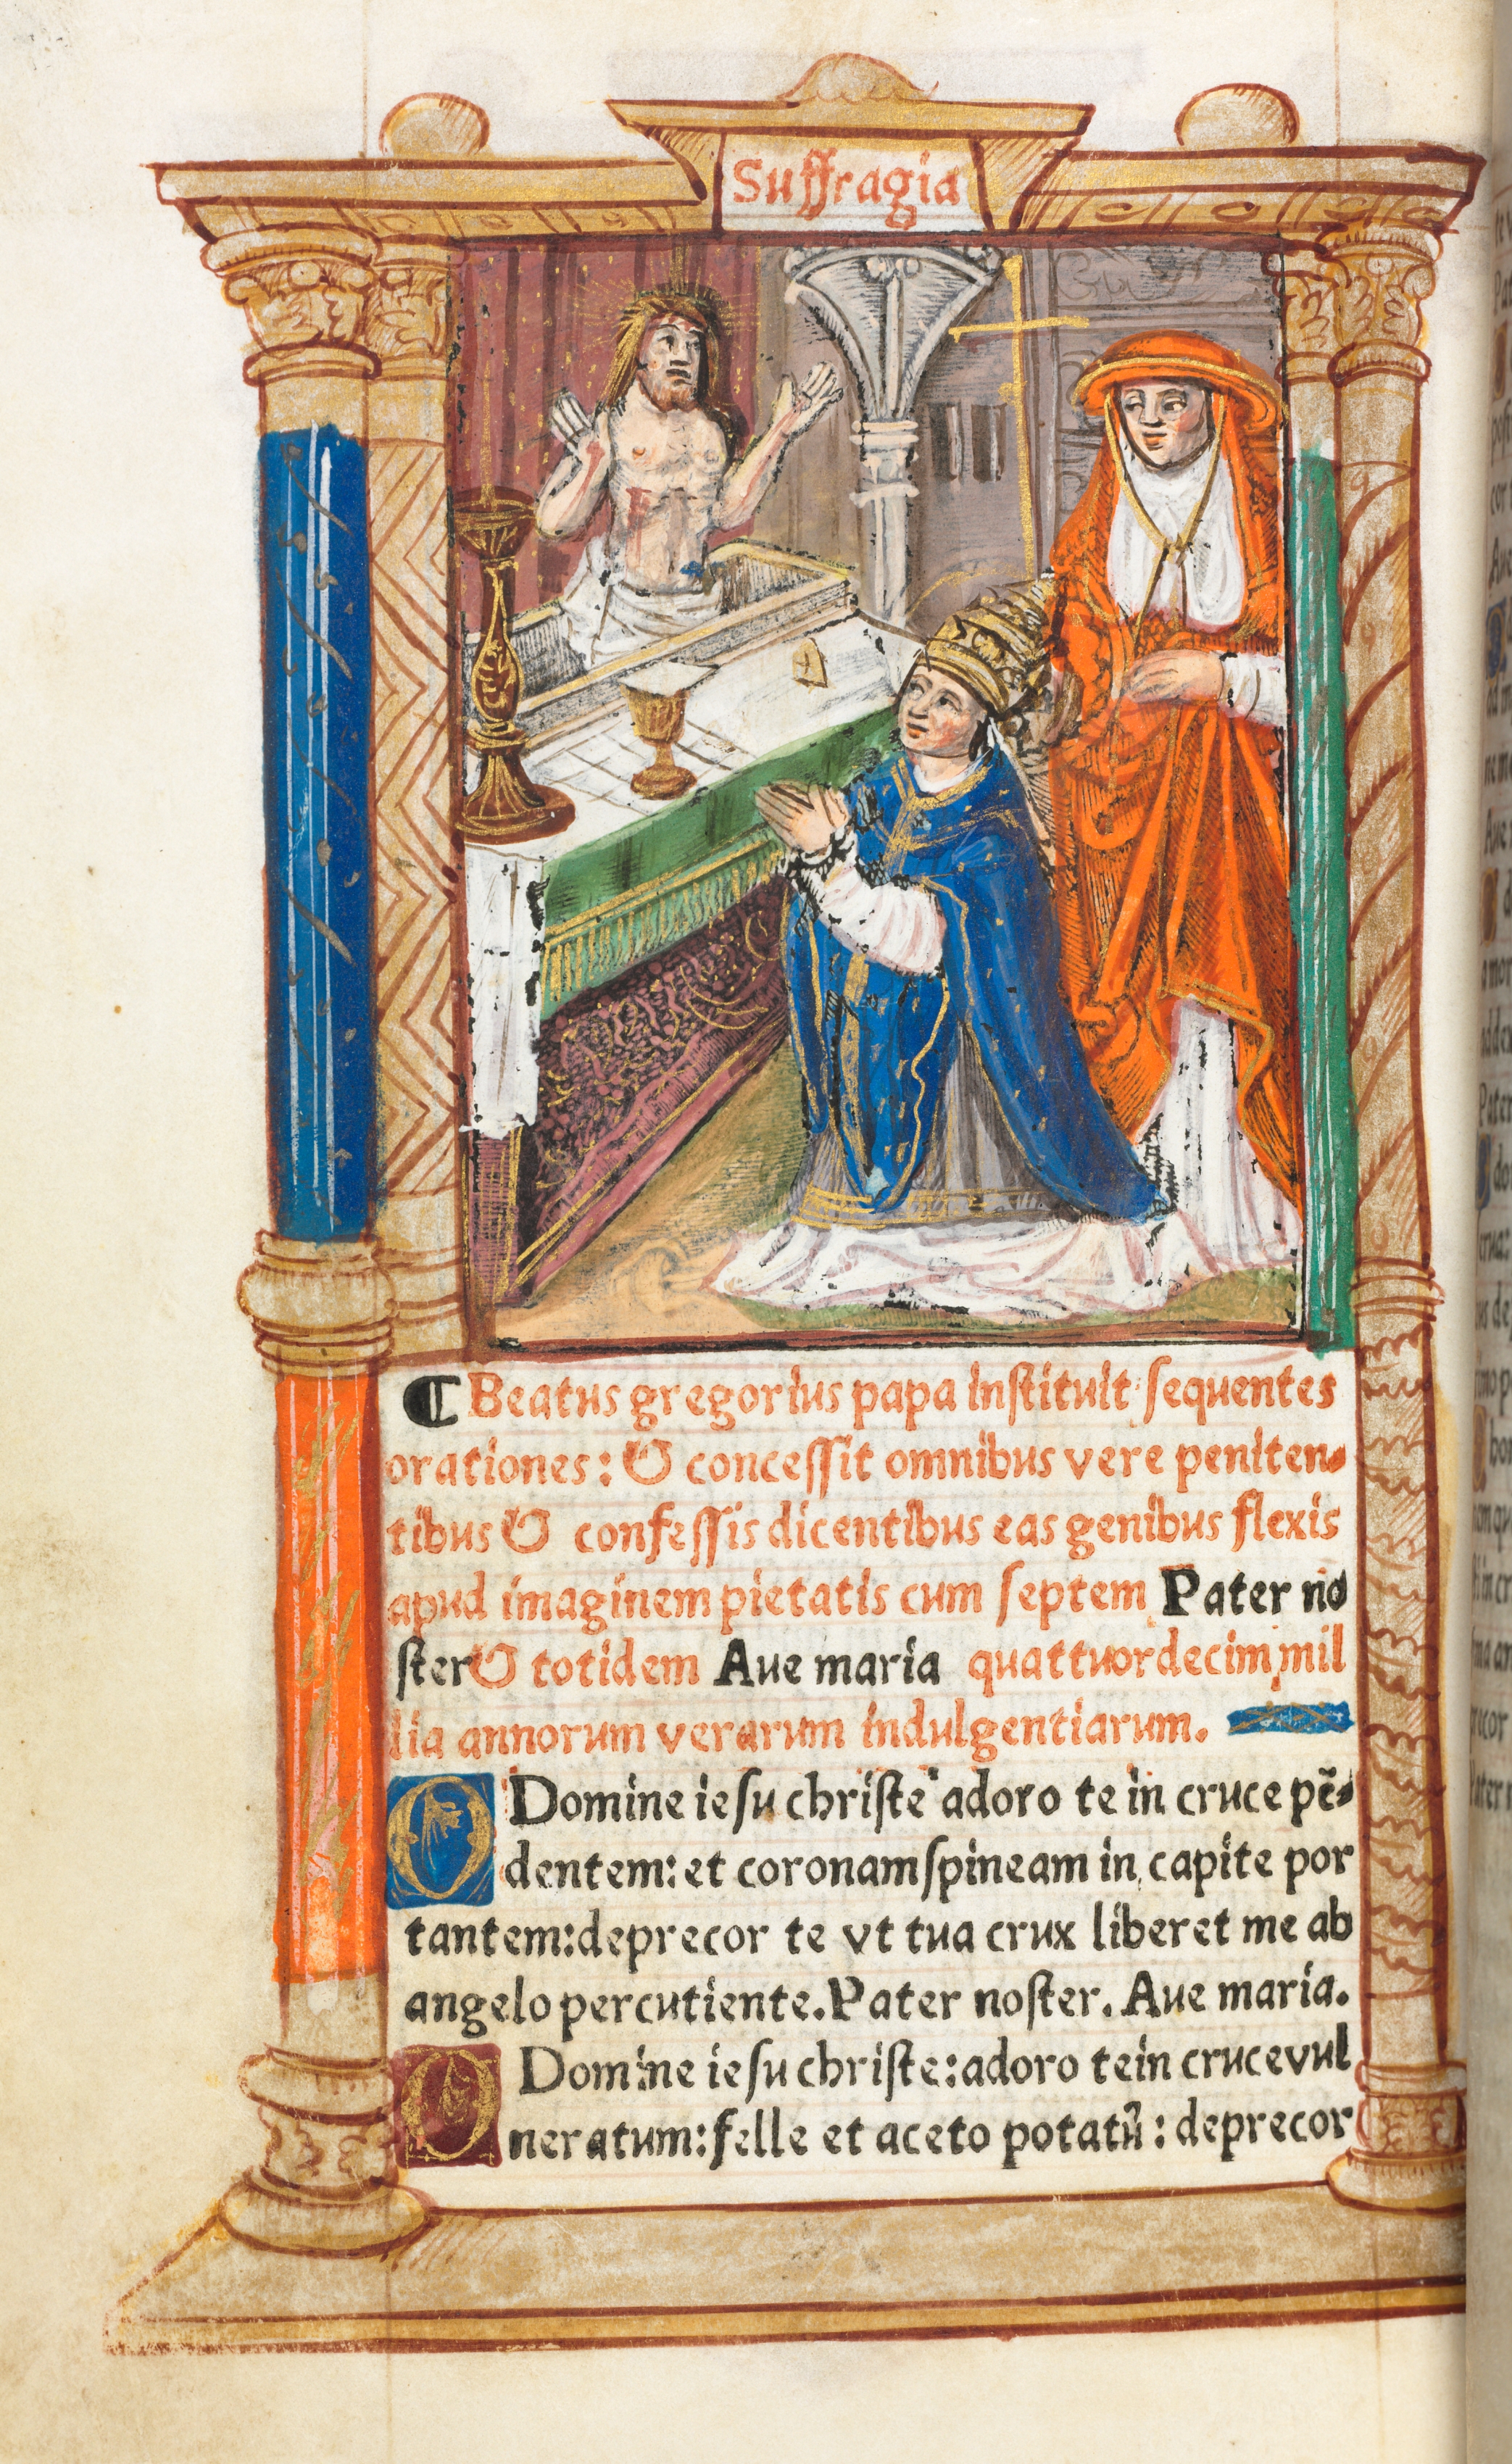 Suffragia
¶ Beatus gregorius papa instituit sequentes
orationes: & concessit omnibus vere peniten-
tibus & confessis dicentibus eas genibus flexis
apud imaginem pietatis cum septem Pater no
ster & totidem Aue maria quattuordecim mil
lia annorum verarum indulgentiarum.
O Domine iesu christe adoro te in cruce pē-
dentem: et coronam spineam in capite por
tantem: deprecor te vt tua crux liberet me ab
angelo percutiente. Pater noster. Aue maria.
O Domine iesu christe: adoro te in cruce vul
neratum: felle et aceto potatū: deprecor